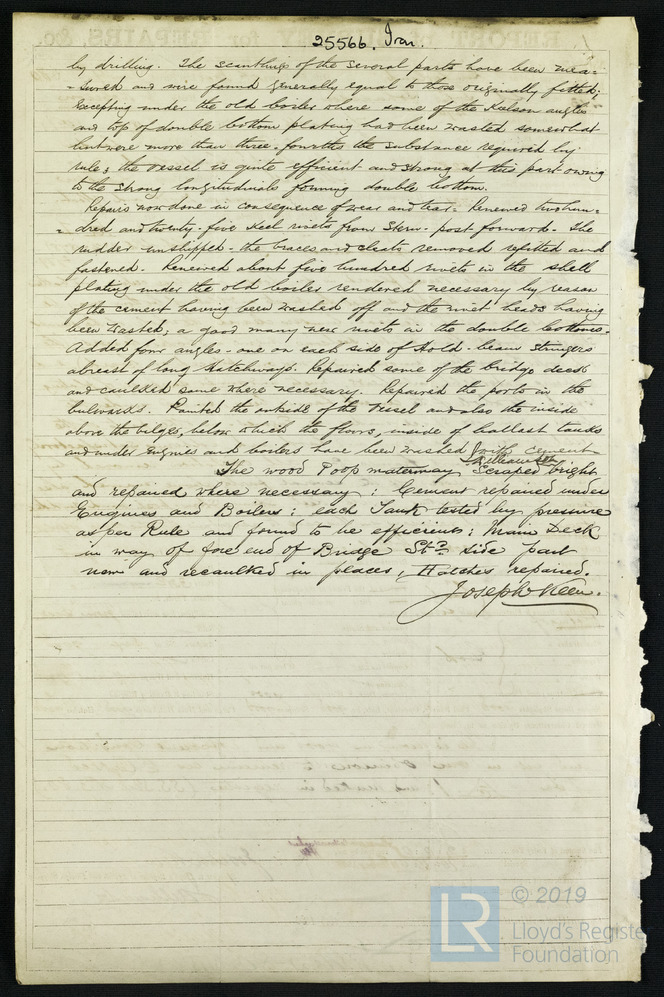 25566. Iron.
by drilling. The scantlings of the several parts have been mea=
=sured and were found generally equal to those originally fitted;
Excepting under the old boiler where some of the Kelson angles
and top of double bottom plating had been wasted somewhat
but were more than three-fourths the substance required by
rule; the vessel is quite efficient and strong at this part owing
to the strong longitudinals forming double bottom.
Repairs now done in consequence of wear and tear. Renewed two hun=
=dred and twenty-five keel rivets from Stern-post forward. The
rudder unshipped - the braces and cleats removed refitted and
fastened. Renewed about five hundred rivets in the shell
plating under the old boiler rendered necessary by reason
of the cement having been washed off and the rivet heads having
been wasted; a good many new rivets in the double bottoms.
Added four angles - one on each side of Hold-beam stringers
abreast of long hatchways. Repaired some of the bridge deck
and caulked same where necessary. Repaired the ports in the
bulwarks. Painted the outside of the vessel and also the inside
above the bilges, below which the floors, inside of ballast tanks
and under engines and boilers have been washed with cement
The wood Poop waterway scraped bright
and repaired where necessary; Cement repaired under
Engines and Boilers; each Tank tested by pressure
as per Rule and found to be efficient; Main Deck
in way of fore end of Bridge Stbd side part
new and recaulked in places, Hatches repaired.
Joseph Keen.
LR
© 2019
Lloyd's Registe
Foundation